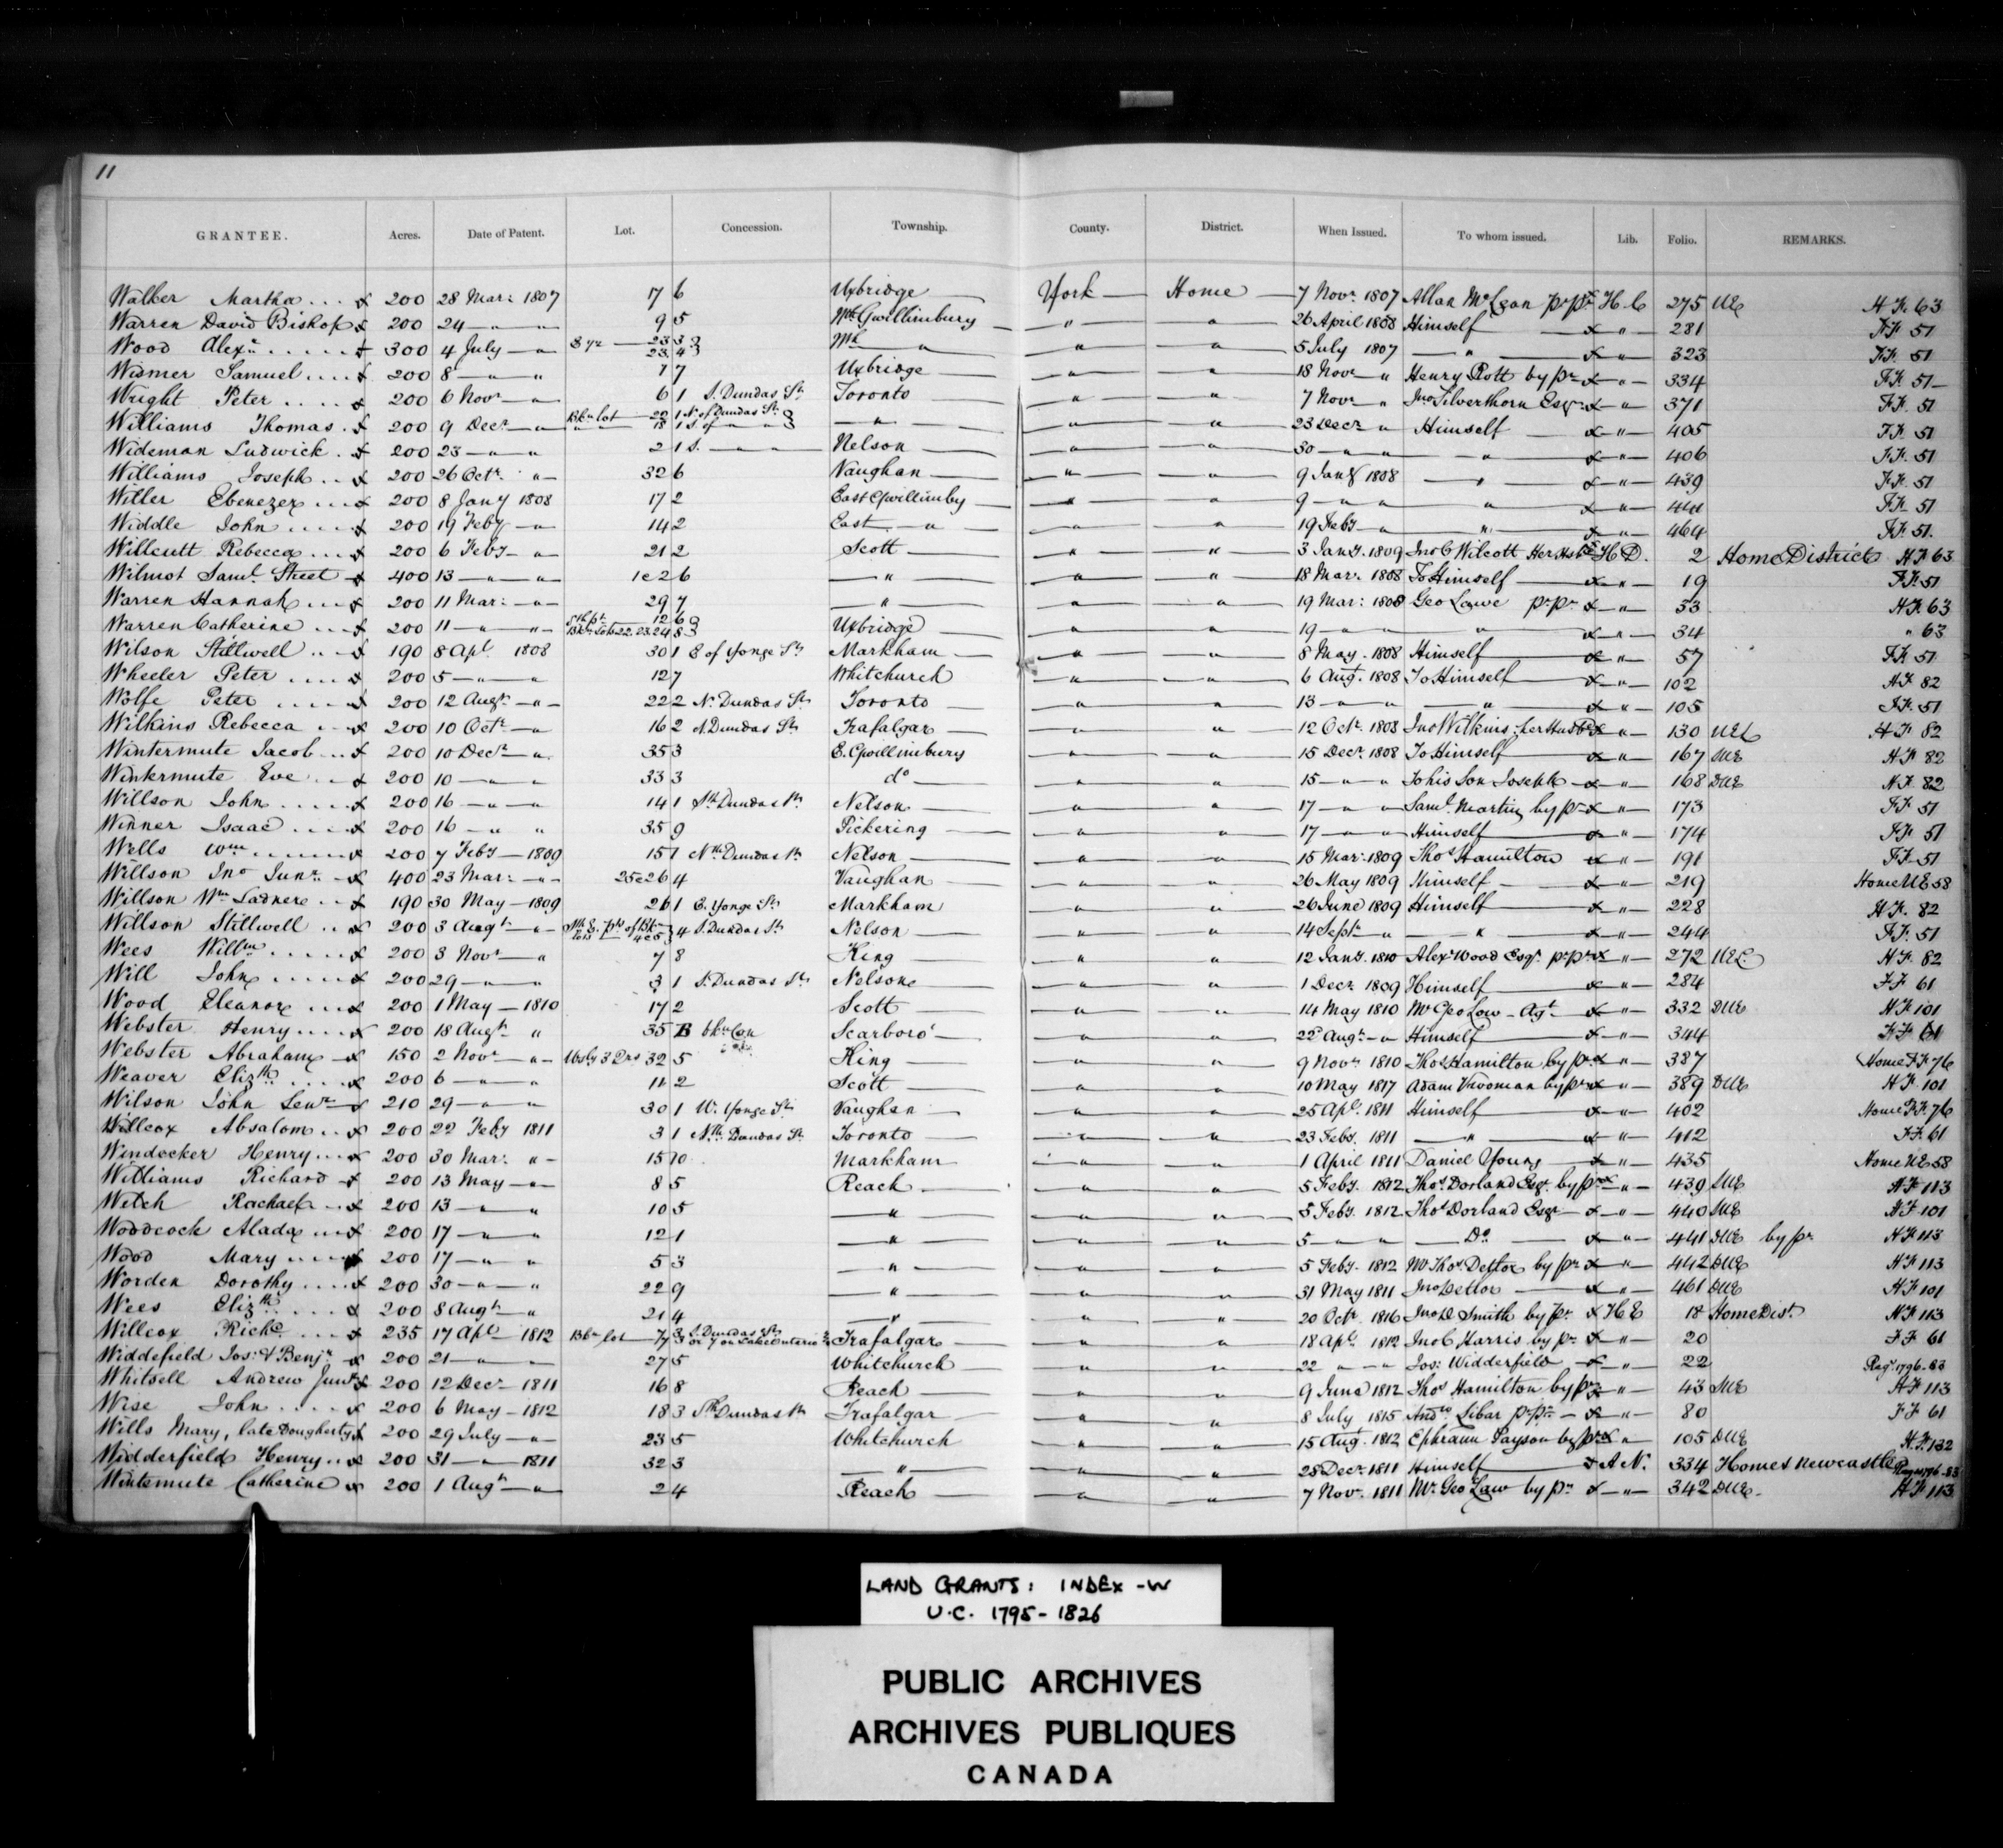 11
GRANTEE. Acres. Date of Patent. Lot. Concession. Township. County. District. When Issued. To whom issued. Lib. Folio. REMARKS.
Walker Martha 200 28 Mar: 1807 17 6 Uxbridge York Home 7 Novr. 1807 Allan McLean pr pr H. C 275 UE H F. 63
Warren David Bishop 200 24 " " 9 5 Nth Gwillimbury " " 26 April 1808 Himself " 281 F.F. 51
Wood Alexr. 300 4 July " 23 3 23 4 " " " 5 July 1807 " " 323 F.F. 51
Widmer Samuel 200 8 " " 7 Uxbridge " " 18 Novr " Henry Rott by pr " 334 F.F. 51
Wright Peter 200 6 Novr " 6 1 S. Dundas St. Toronto " " 7 Novr " Jno Silverthorn Esqr " 371 F.F. 51
Williams Thomas 200 9 Decr " Bkn lot 22 1 N. of Dundas St. " " 18 1 S. of " " " " " 23 Decr " Himself " 405 F.F. 51
Wideman Ludwick 200 23 " " 2 1 S. " " Nelson " " 30 " " " " 406 F.F. 51
Williams Joseph 200 26 Octr. " 32 6 Vaughan " " 9 Jany 1808 " " 439 F.F. 51
Willer Ebenezer 200 8 Jany 1808 17 2 East Gwillimby " " 9 " " " " 441 F.F. 51
Widdle John 200 19 Feby " 14 2 East " " " 19 Feby " " " 464 F.F. 51.
Willcutt Rebecca 200 6 Feby " 21 2 Scott " " 3 Jany. 1809 Jno C Wilcott Her Husbd H D. 2 Home District H F 63
Wilmot Saml. Street 400 13 " " 1 & 2 6 " " " 18 Mar. 1808 To Himself " 19 F.F. 51
Warren Hannah 200 11 Mar: " 29 7 " " " 19 Mar: 1808 Geo Lawe pr pr " 33 H F 63
Warren Catherine 200 11 " " Sth pt. 12 6 Bkn Lots 22, 23. 24 8 Uxbridge " " 19 " " " " 34 " 63
Wilson Stillwell 190 8 Apl. 1808 30 1 E of Yonge St. Markham " " 8 May. 1808 Himself " 57 F.F. 51
Wheeler Peter 200 5 " " 12 7 Whitchurch " " 6 Aug. 1808 To Himself " 102 H.F. 82
Wolfe Peter 200 12 Augt. " 22 2 N. Dundas St. Toronto " " 13 " " " " 105 F.F. 51
Wilkins Rebecca 200 10 Octr. " 16 2 N. Dundas St. Trafalgar " " 12 Octr. 1808 Jno Wilkins her Husbd " 130 UEL H F 82
Wintermute Jacob 200 10 Decr. " 35 3 E. Gwillimbury " " 15 Decr. 1808 To Himself " 167 UE H F 82
Wintermute Eve 200 10 " " 33 3 do " " 15 " " To his Son Joseph " 168 DUE H.F. 82
Willson John 200 16 " " 14 1 Sth Dundas St. Nelson " " 17 " " Saml. Martin by pr " 173 F.F. 51
Winner Isaac 200 16 " " 35 9 Pickering " " 17 " " Himself " 174 F.F. 51
Wells Wm 200 7 Feby 1809 15 1 Nth Dundas St. Nelson " " 15 Mar: 1809 Thos Hamilton " 191 F.F. 51
Willson Jno Junr. 400 23 Mar: " 25 & 26 4 Vaughan " " 26 May 1809 Himself " 219 Home UE 58
Willson Wm Ladner 190 30 May 1809 26 1 E. Yonge St. Markham " " 26 June 1809 Himself " 228 H.F. 82
Willson Stillwell 200 3 Augt " Nth E. pts of Bkn lots 4 & 5 4 S. Dundas St. Nelson " " 14 Septr " " " 244 F.F. 51
Wees Willm 200 3 Novr " 7 8 King " " 12 Jany. 1810 Alexr Wood Esqr. pr pr " 272 UEL H.F. 82
Will John 200 29 " " 3 1 S. Dundas St. Nelson " " 1 Decr 1809 Himself " 284 F F 61
Wood Eleanor 200 1 May 1810 17 2 Scott " " 14 May 1810 Mr Geo Low Agt " 332 DUE H F 101
Webster Henry 200 18 Augt. " 35 B bkn Con Scarboro' " " 22d Augt " Himself " 344 F.F. 61
Webster Abraham 150 2 Novr " 32 5 King " " 9 Novr. 1810 Thos Hamilton by pr " 387 Home F.F. 76
Weaver Elizth 200 6 " " 11 2 Scott " " 10 May 1817 Adam Vrooman by pr " 389 DUE H.F. 101
Wilson John Senr. 210 29 " " 30 1 W. Yonge St. Vaughan " " 25 Apl. 1811 Himself " 402 Home F.F. 76
Willcox Absalom 200 22 Feby 1811 3 1 Nth Dundas St. Toronto " " 23 Feby. 1811 " " 412 F.F. 61
Windecker Henry 200 30 Mar: " 15 10 Markham " " 1 April 1811 Daniel Young " 435 Home UE 58
Williams Richard 200 13 May " 8 5 Reach " " 5 Feby. 1812 Thos Dorland Esqr. by pr " 439 SUE H F 113
Welch Rachael 200 13 " " 10 5 " " " 5 Feby. 1812 Thos Dorland Esqr " 440 SUE H F 101
Woodcock Alada 200 17 " " 12 1 " " " 5 " " Do. " 441 DUE by pr H F 113
Wood Mary 200 17 " " 5 3 " " " 5 Feby. 1812 Mr Thos Dettor by pr " 442 DUE H.F. 113
Worden Dorothy 200 30 " " 22 9 " " " 31 May 1811 Jno Dettor " 461 DUE H F 101
Wees Elizth 200 8 Augt " 21 4 " " " 20 Octr. 1816 Jno D Smith by pr H E 18 Home Dist. H.F. 113
Willcox Richd. 235 17 Apl. 1812 Bkn lot 7 3 S. Dundas St. or 7 on Lake Ontario Trafalgar " " 18 Apl. 1812 Jno C Harris by pr " 20 F F 61
Widdefield Jos: & Benjn 200 21 " " 27 5 Whitchurch " " 22 " " Jos: Widderfield " 22 Regr. 1796-83
Whitsell Andrew Junr 200 12 Decr. 1811 16 8 Reach " " 9 June 1812 Thos Hamilton by pr " 43 SUE H F 113
Wise John 200 6 May 1812 18 3 Sth Dundas St. Trafalgar " " 8 July 1815 Andw Libar pr pr " 80 F F 61
Wills Mary, late Dougherty 200 29 July " 23 5 Whitchurch " " 15 Aug. 1812 Ephraim Payson by pr " 105 DUE H.F. 132
Widderfield Henry 200 31 " 1811 32 3 " " " 28 Decr. 1811 Himself A N. 334 Home & Newcastle
Wintemute Catherine 200 1 Augt. " 2 4 Reach " " 7 Novr. 1811 Mr. Geo Law by pr. " 342 DUE. H F 113
LAND GRANTS: INDEX -W
U.C. 1795-1826
PUBLIC ARCHIVES
ARCHIVES PUBLIQUES
CANADA